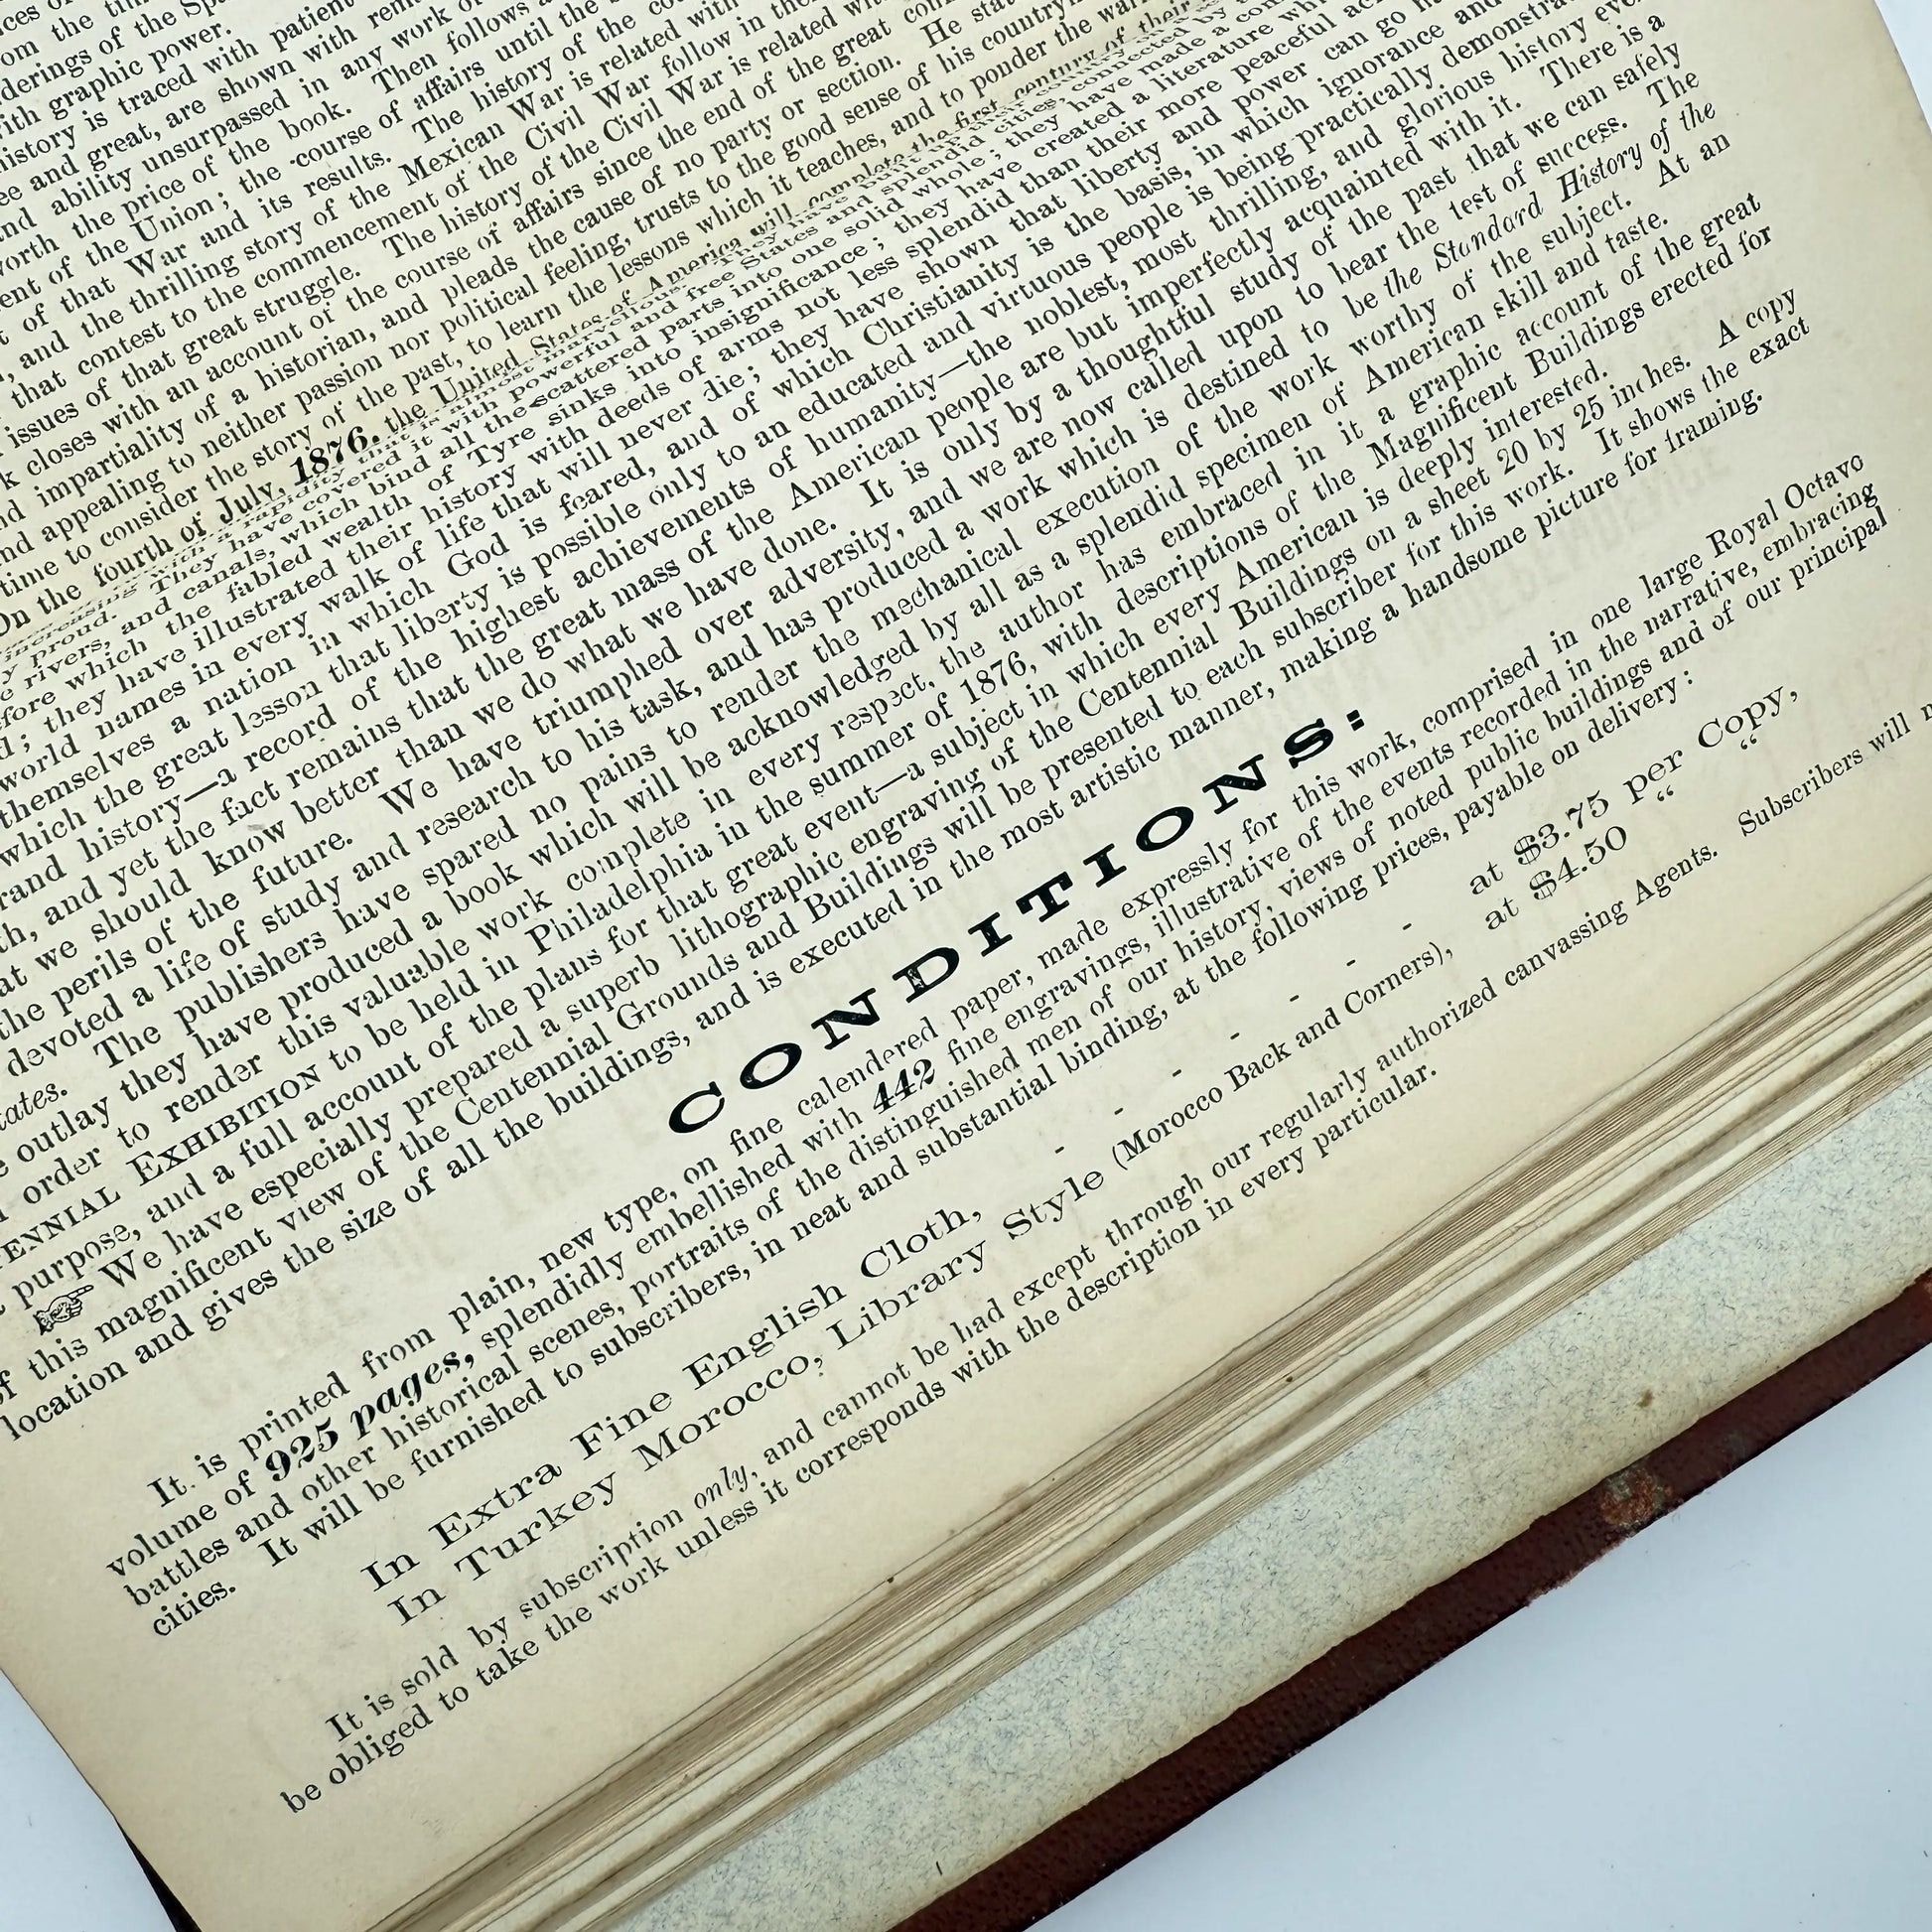 from the time
derings of the Spa
with graphic power.
history is traced with patient
ee and great, are shown with rem
and ability unsurpassed in any work o
worth the price of the book. Then follows a
ent of the Union; the course of affairs until the
t of that War and its results. The history of the cou
, and the thrilling story of the Mexican War is related with
that contest to the commencement of the Civil War follow in the
issues of that great struggle. The history of the Civil War is related wi
k closes with an account of the course of affairs since the end of the great cou
nd impartiality of a historian, and pleads the cause of no party or section. He stat
nd appealing to neither passion nor political feeling, trusts to the good sense of his countrym
time to consider the story of the past, to learn the lessons which it teaches, and to ponder the war
On the fourth of July, 1876, the United States of America will complete the first century of their
increasing with a rapidity that is almost marvellous. They have built up
y proud. They have covered it with powerful and free States and splendid cities, connected by
e rivers, and canals, which bind all the scattered parts into one solid whole; they have made a com
fore which the fabled wealth of Tyre sinks into insignificance; they have created a literature whi
d; they have illustrated their history with deeds of arms not less splendid than their more peaceful ac
world names in every walk of life that will never die; they have shown that liberty and power can go ha
themselves a nation in which God is feared, and of which Christianity is the basis, in which ignorance and
which the great lesson that liberty is possible only to an educated and virtuous people is being practically demonstra
rand history—a record of the highest achievements of humanity—the noblest, most thrilling, and glorious history eve
th, and yet the fact remains that the great mass of the American people are but imperfectly acquainted with it. There is a
at we should know better than we do what we have done. It is only by a thoughtful study of the past that we can safely
the perils of the future. We have triumphed over adversity, and we are now called upon to bear the test of success. The
devoted a life of study and research to his task, and has produced a work which is destined to be the Standard History of the
tates. The publishers have spared no pains to render the mechanical execution of the work worthy of the subject. At an
e outlay they have produced a book which will be acknowledged by all as a splendid specimen of American skill and taste.
order to render this valuable work complete in every respect, the author has embraced in it a graphic account of the great
TENNIAL EXHIBITION to be held in Philadelphia in the summer of 1876, with descriptions of the Magnificent Buildings erected for
purpose, and a full account of the plans for that great event—a subject in which every American is deeply interested.
☞ We have especially prepared a superb lithographic engraving of the Centennial Buildings on a sheet 20 by 25 inches. A copy
of this magnificent view of the Centennial Grounds and Buildings will be presented to each subscriber for this work. It shows the exact
location and gives the size of all the buildings, and is executed in the most artistic manner, making a handsome picture for framing.
CONDITIONS:
It is printed from plain, new type, on fine calendered paper, made expressly for this work, comprised in one large Royal Octavo
volume of 925 pages, splendidly embellished with 442 fine engravings, illustrative of the events recorded in the narrative, embracing
battles and other historical scenes, portraits of the distinguished men of our history, views of noted public buildings and of our principal
cities. It will be furnished to subscribers, in neat and substantial binding, at the following prices, payable on delivery:
In Extra Fine English Cloth, - - - - - - - at $3.75 per Copy,
In Turkey Morocco, Library Style (Morocco Back and Corners), at $4.50 “ “
It is sold by subscription only, and cannot be had except through our regularly authorized canvassing Agents. Subscribers will n
be obliged to take the work unless it corresponds with the description in every particular.